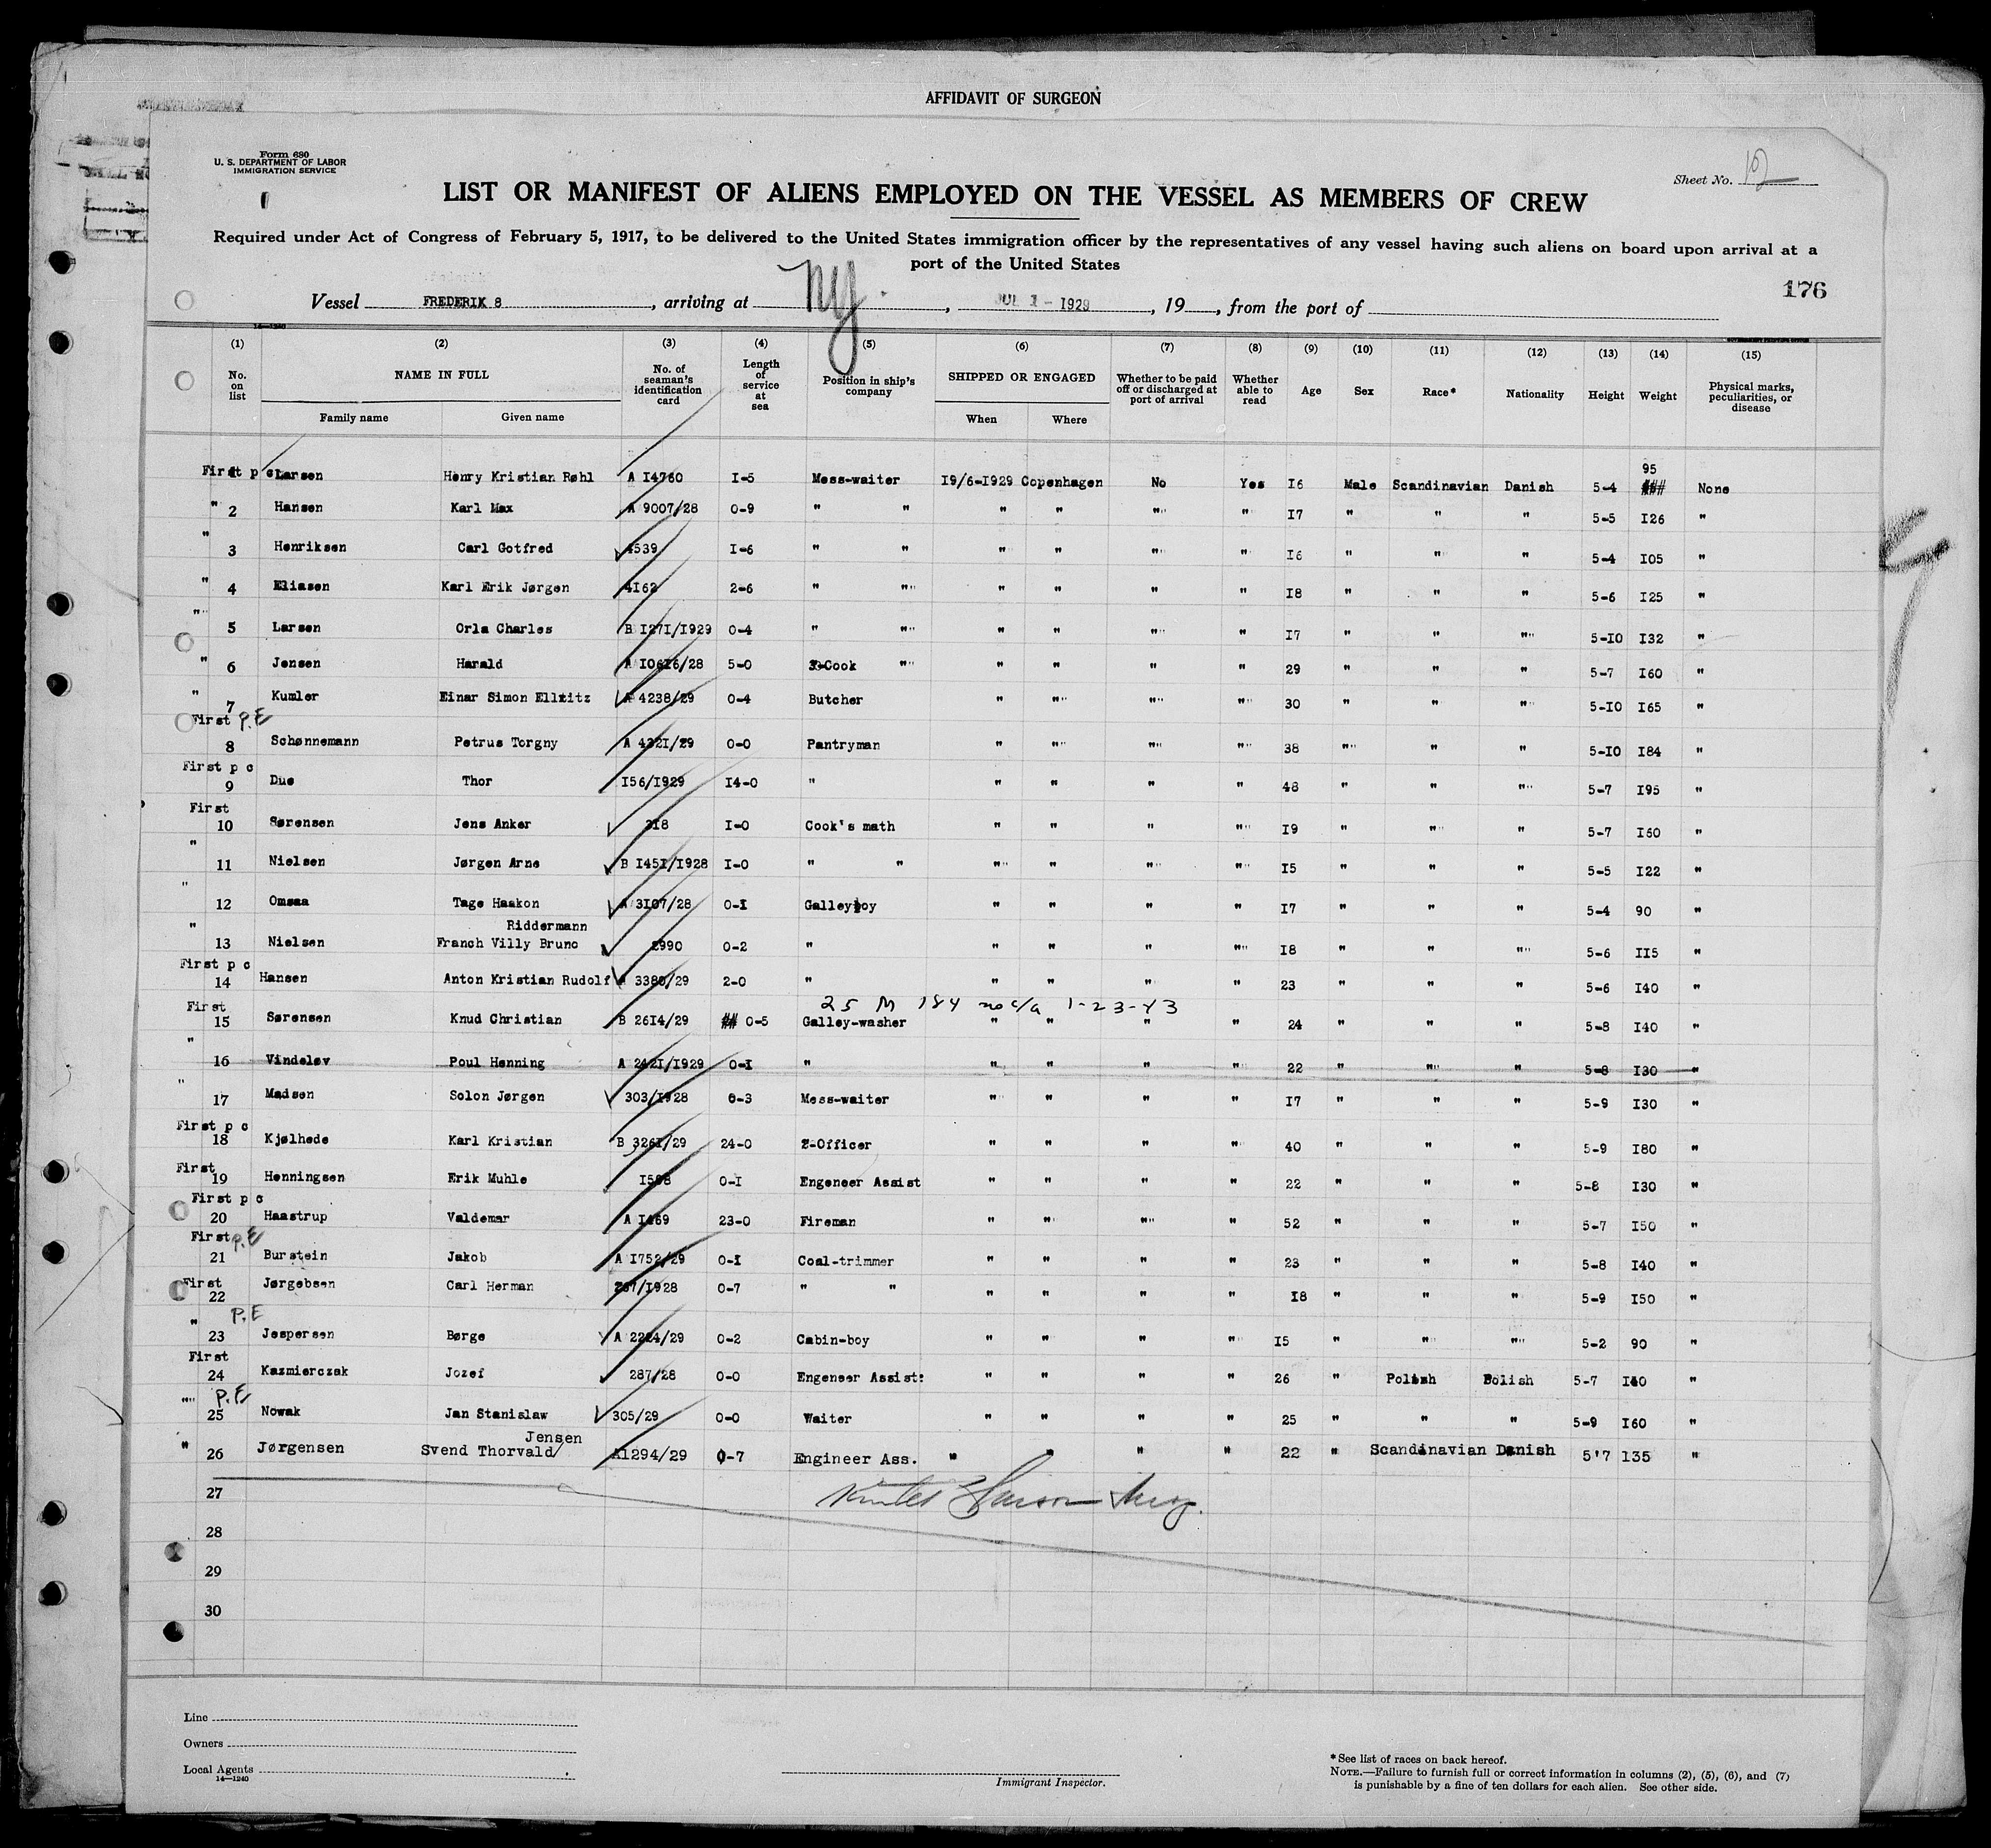 AFFIDAVIT OF SURGEON
Form 680
U. S. DEPARTMENT OF LABOR
IMMIGRATION SERVICE
Sheet No.
LIST OR MANIFEST OF ALIENS EMPLOYED ON THE VESSEL AS MEMBERS OF CREW
Required under Act of Congress of February 5, 1917, to be delivered to the United States immigration officer by the representatives of any vessel having such aliens on board upon arrival at a
port of the United States
176
Vessel FREDERIK 8, arriving at NY., JUL 1 - 1929, 19, from the port of
14-1240
(1) (2) (3) (4) (5) (6) (7) (8) (9) (10) (11) (12) (13) (14) (15)
No. on list NAME IN FULL Family name Given name No. of seaman's identification card Length of service at sea Position in ship's company SHIPPED OR ENGAGED When Where Whether to be paid off or discharged at port of arrival Whether able to read Age Sex Race* Nationality Height Weight Physical marks, peculiarities, or disease
First p c Larsen Henry Kristian Røhl A I4760 I-5 Mess-waiter I9/6-I929 Copenhagen No Yes I6 Male Scandinavian Danish 5-4 95 None
" 2 Hansen Karl Max A 9007/28 0-9 " " " " " " I7 " " " 5-5 I26 "
" 3 Henriksen Carl Gotfred 4539 I-6 " " " " " " I6 " " " 5-4 I05 "
" 4 Eliasen Karl Erik Jørgen 4I62 2-6 " " " " " " I8 " " " 5-6 I25 "
" 5 Larsen Orla Charles B I27I/I929 0-4 " " " " " " I7 " " " 5-IO I32 "
" 6 Jensen Harald A I06I6/28 5-0 Cook " " " " " 29 " " " 5-7 I60 "
" 7 Kumler Einar Simon Ellritz A 4238/29 0-4 Butcher " " " " 30 " " " 5-IO I65 "
First P.E
8 Schønnemann Petrus Torgny A 432I/29 0-0 Pantryman " " " " 38 " " " 5-IO I84 "
First p c
9 Due Thor I56/I929 I4-0 " " " " " 48 " " " 5-7 I95 "
First
10 Sørensen Jens Anker 3I8 I-0 Cook's math " " " " I9 " " " 5-7 I60 "
" 11 Nielsen Jørgen Arne B I45I/I928 I-0 " " " " " " I5 " " " 5-5 I22 "
" 12 Omsaa Tage Haakon A 3I07/28 0-I Galleyboy " " " " I7 " " " 5-4 90 "
Riddermann
" 13 Nielsen Franch Villy Bruno 2990 0-2 " " " " " I8 " " " 5-6 II5 "
First p c
14 Hansen Anton Kristian Rudolf 3380/29 2-0 " " " " " 23 " " " 5-6 I40 "
25 M 184 no c/a 1-23-43
First
15 Sørensen Knud Christian B 26I4/29 0-5 Galley-washer " " " " 24 " " " 5-8 I40 "
" 16 Vindeløv Poul Henning A 242I/I929 0-I " " " " " 22 " " " 5-8 I30 "
" 17 Madsen Solon Jørgen 303/I928 0-3 Mess-waiter " " " " I7 " " " 5-9 I30 "
First p c
18 Kjølhede Karl Kristian B 326I/29 24-0 2-Officer " " " " 40 " " " 5-9 I80 "
First
19 Henningsen Erik Muhle I508 0-I Engeneer Assist " " " " 22 " " " 5-8 I30 "
First p c
20 Haastrup Valdemar A I469 23-0 Fireman " " " " 52 " " " 5-7 I50 "
First P.E
21 Burstein Jakob A I752/29 0-I Coal-trimmer " " " " 23 " " " 5-8 I40 "
First
22 Jørgebsen Carl Herman 267/I928 0-7 " " " " " " I8 " " " 5-9 I50 "
P.E
" 23 Jespersen Børge A 2224/29 0-2 Cabin-boy " " " " I5 " " " 5-2 90 "
First
24 Kazmierczak Jozef 287/28 0-0 Engeneer Assist: " " " " 26 " Polish Polish 5-7 I40 "
" P.E
25 Nowak Jan Stanislaw 305/29 0-0 Waiter " " " " 25 " " " 5-9 I60 "
Jensen
" 26 Jørgensen Svend Thorvald/ A1294/29 0-7 Engineer Ass. " " " " 22 " Scandinavian Danish 5'7 135 "
27
28
29
30
Line
Owners
Local Agents
14-1240
Immigrant Inspector.
*See list of races on back hereof.
NOTE.—Failure to furnish full or correct information in columns (2), (5), (6), and (7)
is punishable by a fine of ten dollars for each alien. See other side.